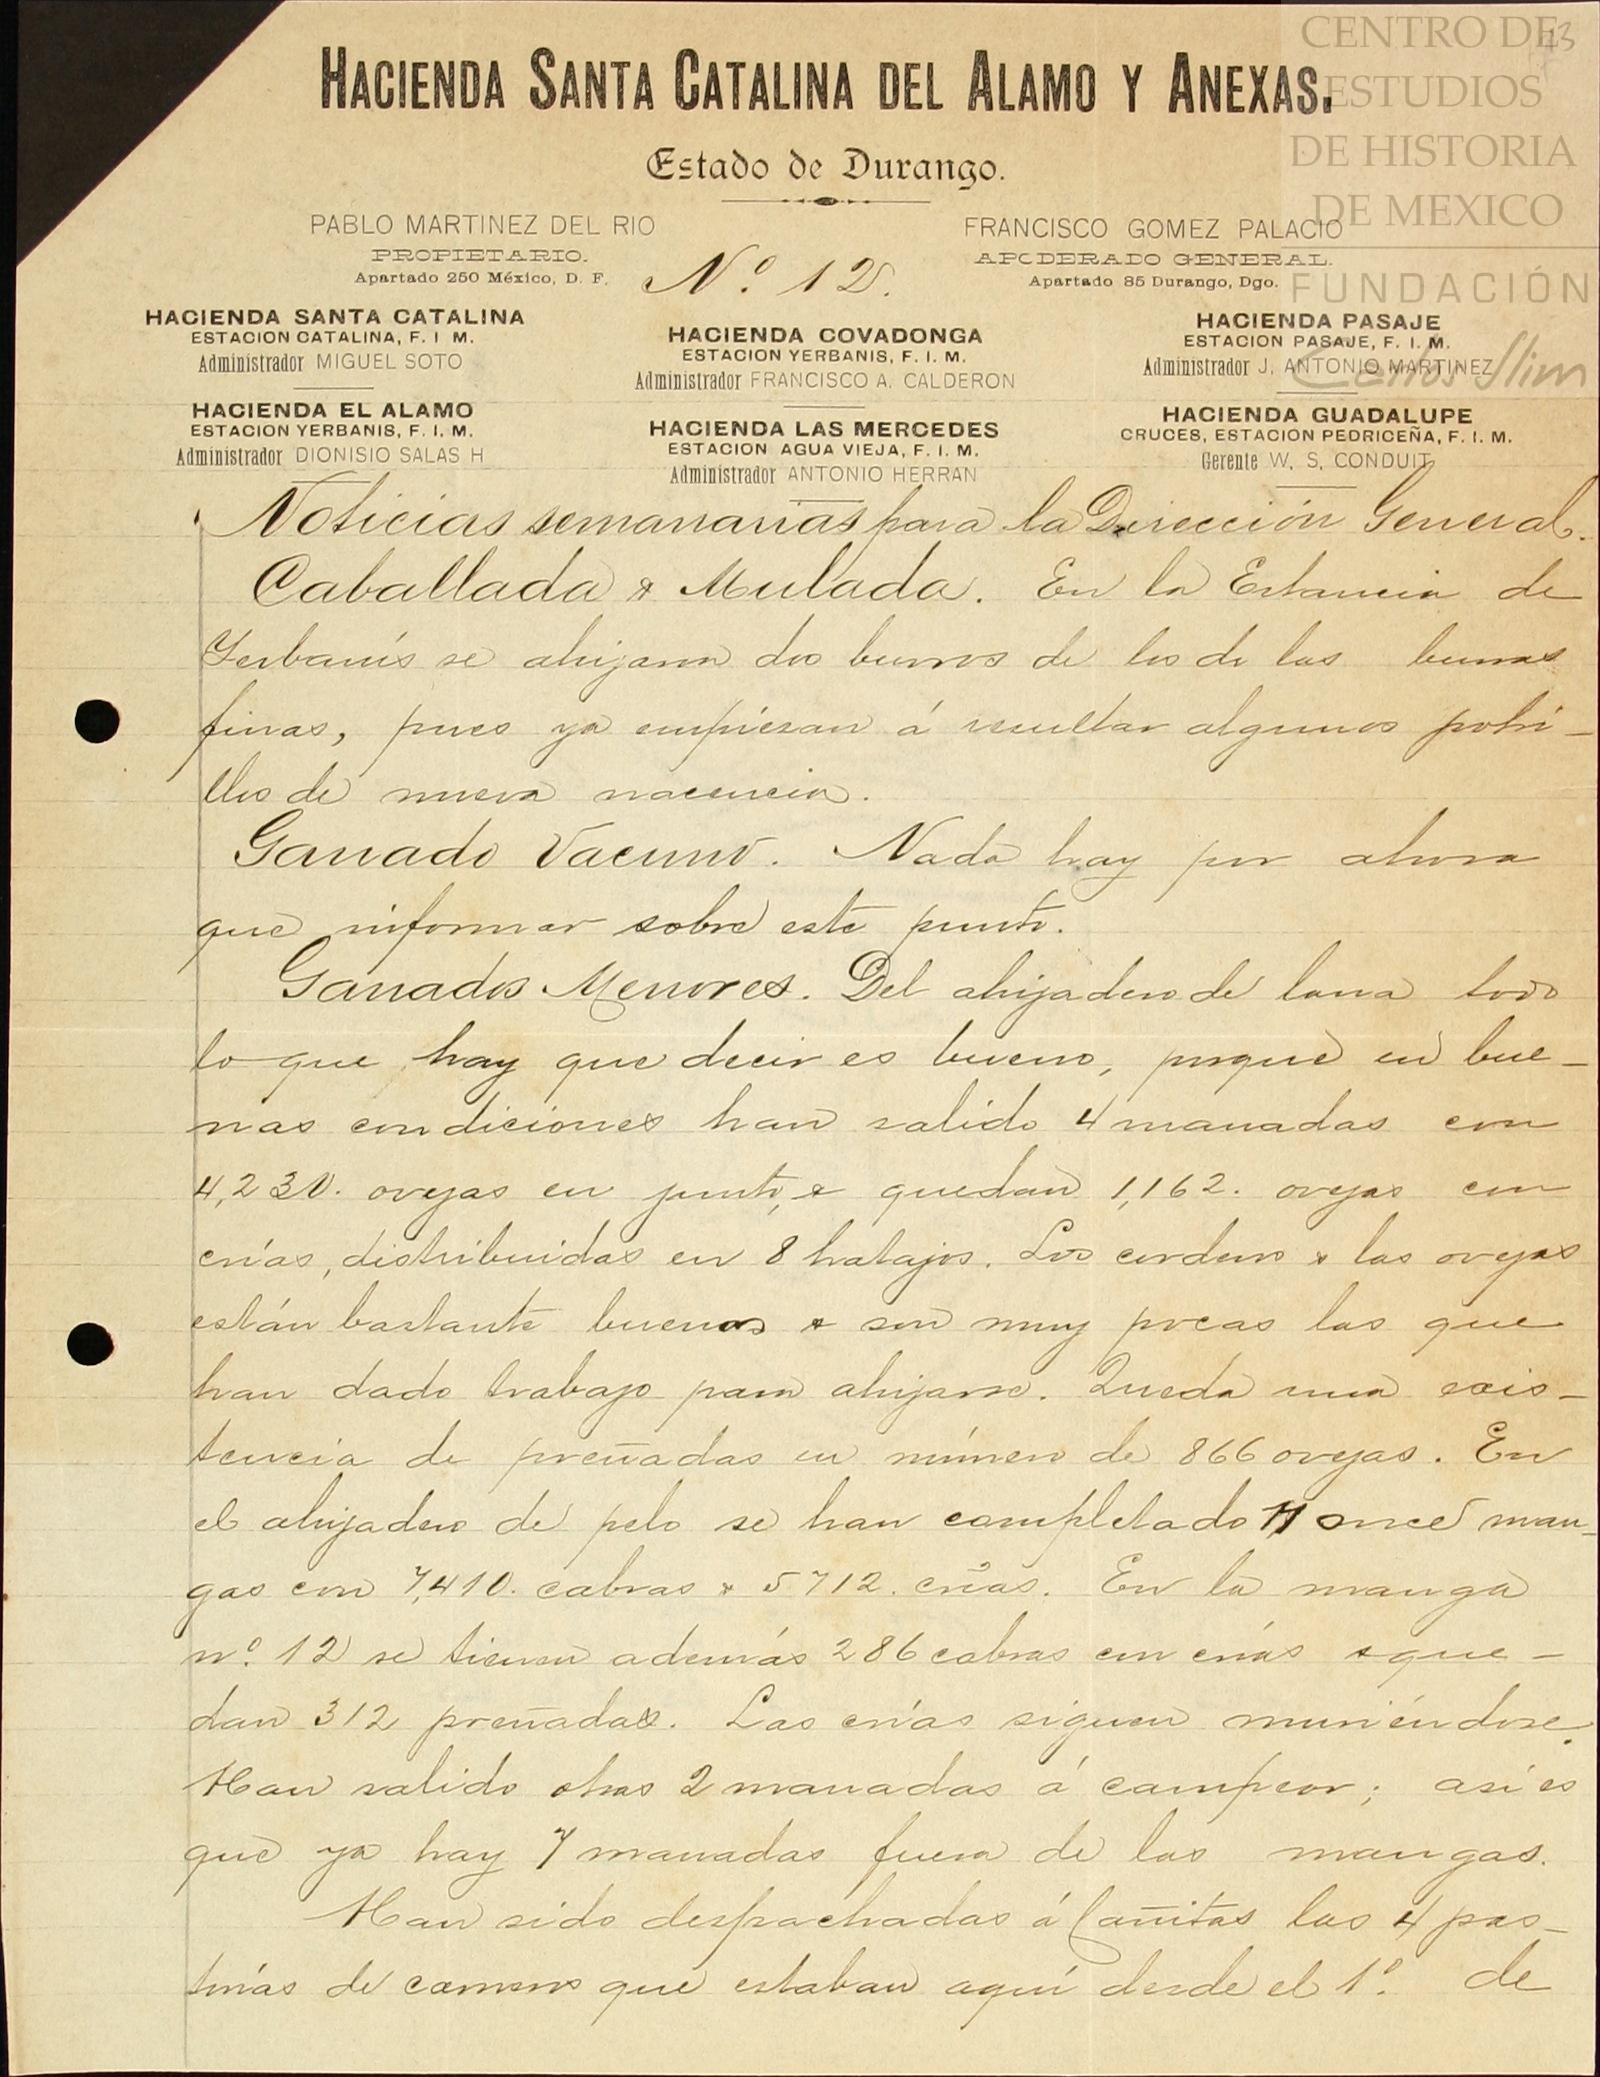 CENTRO DE
ESTUDIOS
DE HISTORIA
DE MEXICO
FUNDACIÓN
Carlos Slim
13
HACIENDA SANTA CATALINA DEL ALAMO Y ANEXAS.
Estado de Durango.
PABLO MARTINEZ DEL RIO
PROPIETARIO.
Apartado 250 México, D. F.
Nº. 12.
FRANCISCO GOMEZ PALACIO
APODERADO GENERAL.
Apartado 85 Durango, Dgo.
HACIENDA SANTA CATALINA
ESTACION CATALINA, F. I M.
Administrador MIGUEL SOTO
HACIENDA EL ALAMO
ESTACION YERBANIS, F. I. M.
Administrador DIONISIO SALAS H
HACIENDA COVADONGA
ESTACION YERBANIS, F. I. M.
Administrador FRANCISCO A. CALDERON
HACIENDA LAS MERCEDES
ESTACION AGUA VIEJA, F. I. M.
Administrador ANTONIO HERRAN
HACIENDA PASAJE
ESTACION PASAJE, F. I. M.
Administrador J. ANTONIO MARTINEZ
HACIENDA GUADALUPE
CRUCES, ESTACION PEDRICEÑA, F. I. M.
Gerente W. S. CONDUIT
Noticias semanarias para la Dirección General.
Caballada & Mulada. En la Estancia de
Yerbanís se ahijaron dos burros de los de las burras
finas, pues ya empiezan á resultar algunos potri-
llos de nueva nacencia.
Ganado Vacuno. Nada hay por ahora
que informar sobre este punto.
Ganados Menores. Del ahijadero de lana todo
lo que hay que decir es bueno, porque en bue-
nas condiciones han salido 4 manadas con
4,230. ovejas en junto, & quedan 1,162. ovejas con
crías, distribuidas en 8 hatajos. Los corderos & las ovejas
están bastante buenos & son muy pocas las que
han dado trabajo para ahijarse. Queda una exis-
tencia de preñadas en número de 866 ovejas. En
el ahijadero de pelo se han completado 11 once man-
gas con 7,410. cabras & 5712. crías. En la manga
nº. 12 se tienen además 286 cabras con crías & que-
dan 312 preñadas. Las crías siguen muriéndose.
Han salido otras 2 manadas á campear; así es
que ya hay 7 manadas fuera de las mangas.
Han sido despachadas á Cañitas las 4 pas-
torías de carneros que estaban aquí desde el 1º. de